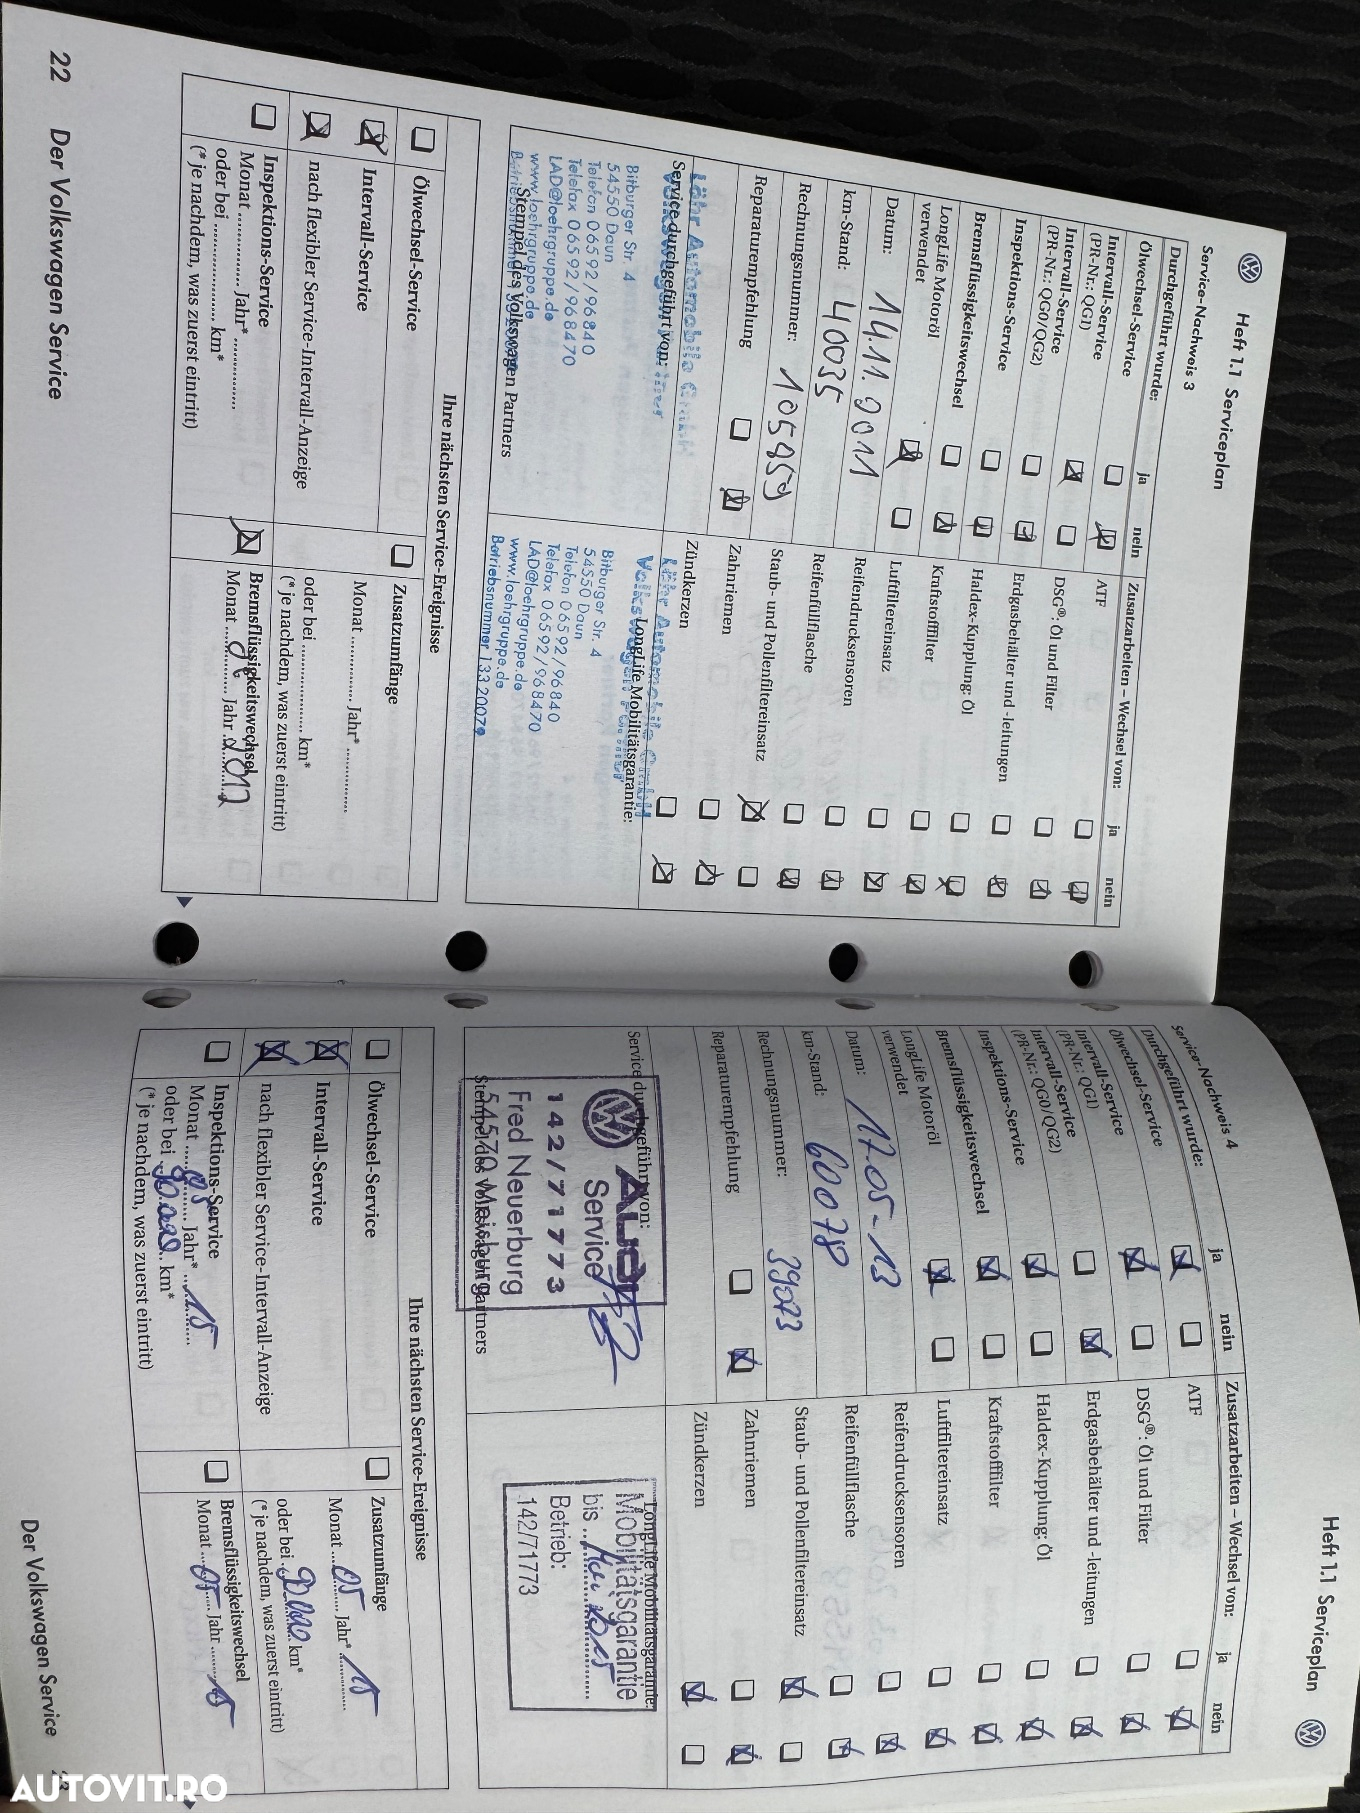 Heft 1.1 Serviceplan
Service-Nachweis 3
Durchgeführt wurde: ja nein
Ölwechsel-Service
Intervall-Service
(PR-Nr.: QG1)
Intervall-Service
(PR-Nr.: QG0/QG2)
Inspektions-Service
Bremsflüssigkeitswechsel
LongLife Motoröl
verwendet
Datum: 14.11.2011
km-Stand: 40035
Rechnungsnummer:
Reparaturempfehlung
Service durchgeführt von:
Löhr Automobile GmbH
Bitburger Str. 4
54550 Daun
Telefon 06592/96840
Telefax 06592/968470
LAD@loehrgruppe.de
www.loehrgruppe.de
Stempel des Volkswagen Partners
Zusatzarbeiten – Wechsel von: ja nein
ATF
DSG®: Öl und Filter
Erdgasbehälter und -leitungen
Haldex-Kupplung: Öl
Kraftstofffilter
Luftfiltereinsatz
Reifendrucksensoren
Reifenfüllflasche
Staub- und Pollenfiltereinsatz
Zahnriemen
Zündkerzen
LongLife Mobilitätsgarantie:
Löhr Automobile GmbH
Bitburger Str. 4
54550 Daun
Telefon 06592/96840
Telefax 06592/968470
LAD@loehrgruppe.de
www.loehrgruppe.de
Betriebsnummer 133 20079
Ihre nächsten Service-Ereignisse
Ölwechsel-Service
Intervall-Service
nach flexibler Service-Intervall-Anzeige
Inspektions-Service
Monat ............... Jahr* ...............
oder bei .................... km*
(* je nachdem, was zuerst eintritt)
Zusatzumfänge
Monat ............... Jahr* ...............
oder bei .................... km*
(* je nachdem, was zuerst eintritt)
Bremsflüssigkeitswechsel
Monat Jahr 2012
22 Der Volkswagen Service
Heft 1.1 Serviceplan
Service-Nachweis 4
Durchgeführt wurde: ja nein
Ölwechsel-Service
Intervall-Service
(PR-Nr.: QG1)
Intervall-Service
(PR-Nr.: QG0/QG2)
Inspektions-Service
Bremsflüssigkeitswechsel
LongLife Motoröl
verwendet
Datum: 17.05-13
km-Stand: 60078
Rechnungsnummer: 39073
Reparaturempfehlung
Service durchgeführt von:
Audi
Service
142/71773
Fred Neuerburg
54570 Meisburg
Stempel des Volkswagen Partners
Zusatzarbeiten – Wechsel von: ja nein
ATF
DSG®: Öl und Filter
Erdgasbehälter und -leitungen
Haldex-Kupplung: Öl
Kraftstofffilter
Luftfiltereinsatz
Reifendrucksensoren
Reifenfüllflasche
Staub- und Pollenfiltereinsatz
Zahnriemen
Zündkerzen
LongLife Mobilitätsgarantie:
Mobilitätsgarantie
bis Mai 2015
Betrieb:
142/71773
Ihre nächsten Service-Ereignisse
Ölwechsel-Service
Intervall-Service
nach flexibler Service-Intervall-Anzeige
Inspektions-Service
Monat 05 Jahr* 15
oder bei 90.000 km*
(* je nachdem, was zuerst eintritt)
Zusatzumfänge
Monat 05 Jahr* 15
oder bei 90000 km*
(* je nachdem, was zuerst eintritt)
Bremsflüssigkeitswechsel
Monat 05 Jahr 15
Der Volkswagen Service 23
AUTOVIT.RO